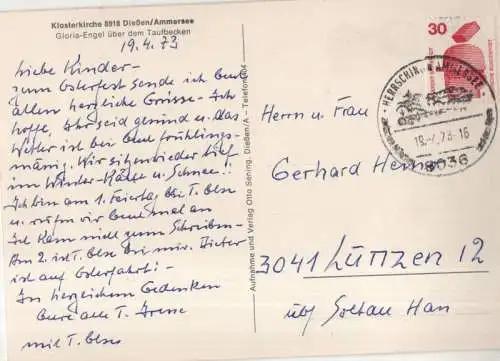 Klosterkirche 8918 Dießen/Ammersee
Gloria-Engel über dem Taufbecken
19.4.73
Liebe Kinder -
zum Osterfest sende ich Euch
allen herzliche Grüsse - Ich
hoffe, Ihr seid gesund u. das
Wetter ist bei Euch frühlings-
mässig. Wir sitzen wieder tief
im Winter - Kälte u. Schnee!!
Ich bin am 1. Feiertag bei T. Elsa
u. rufen wir Euch mal an
Ich kam nicht zum Schreiben -
Am 2. ist T. Elsa bei mir. Dieter
ist auf Osterfahrt! -
In herzlichem Gedenken
Eure alte T. Irene
mit T. Elsa
Aufnahme und Verlag Otto Sening, Dießen/A - Telefon 404
30
HERRSCHING AMMERSEE
19.-4.73-16
8036
Herrn u. Frau
Gerhard
3041 Lünzen 12
üb/ Soltau Han